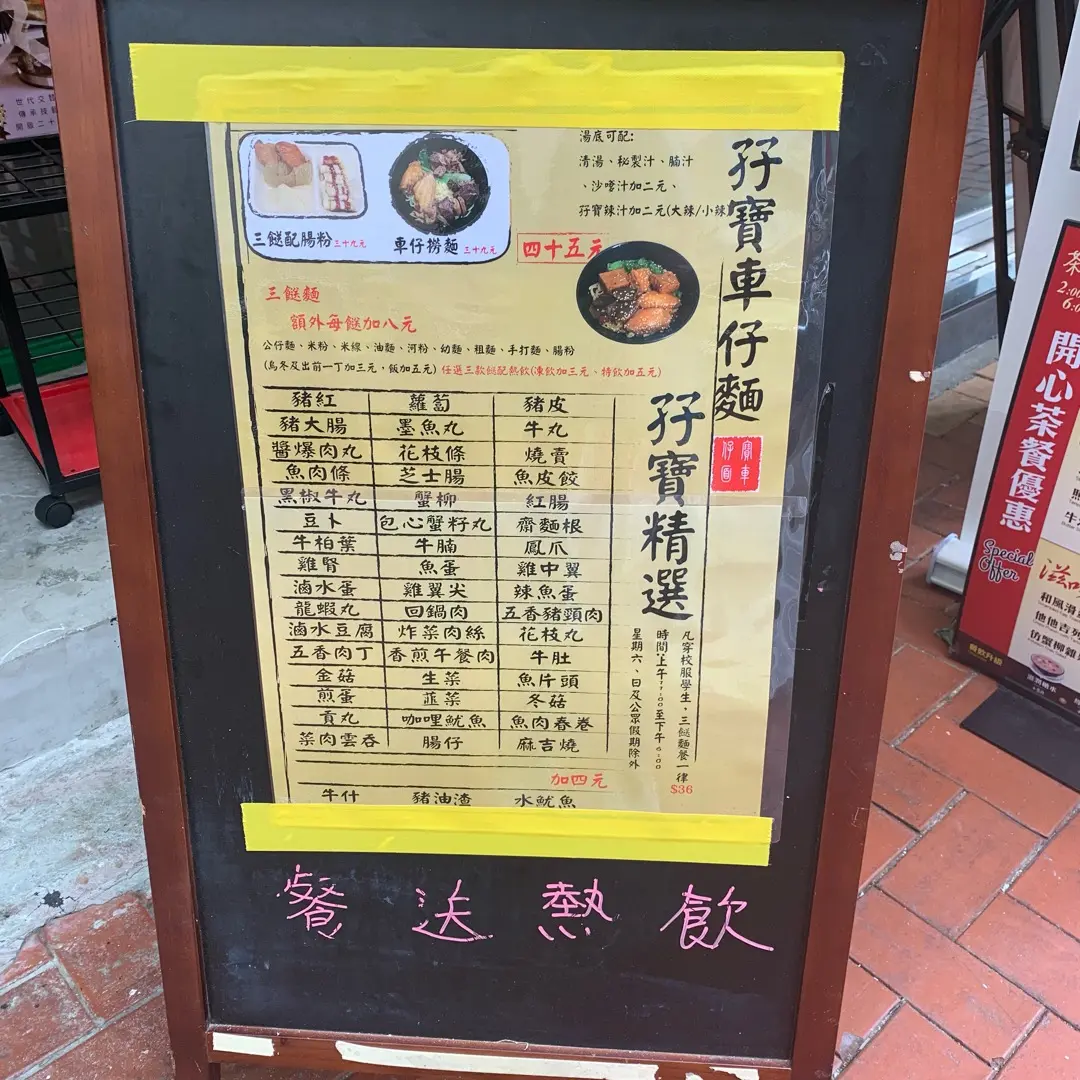 世代交
傳承技
開區二十
湯底可配:
清湯、秘製汁、腩汁
、沙嗲汁加二元、
孖寶辣汁加二元(大辣/小辣)
孖寶車仔麵
三餸配腸粉 三十九元
車仔撈麵 三十九元
四十五元
三餸麵
額外每餸加八元
公仔麵、米粉、米線、油麵、河粉、幼麵、粗麵、手打麵、腸粉
(烏冬及出前一丁加三元,飯加五元) 任選三款餸配熱飲(凍飲加三元、特飲加五元)
孖寶精選
豬紅 蘿蔔 豬皮
豬大腸 墨魚丸 牛丸
醬爆肉丸 花枝條 燒賣
魚肉條 芝士腸 魚皮餃
黑椒牛丸 蟹柳 紅腸
豆卜 包心蟹籽丸 齋麵根
牛柏葉 牛腩 鳳爪
雞腎 魚蛋 雞中翼
滷水蛋 雞翼尖 辣魚蛋
龍蝦丸 回鍋肉 五香豬頸肉
滷水豆腐 炸菜肉絲 花枝丸
五香肉丁 香煎午餐肉 牛肚
金菇 生菜 魚片頭
煎蛋 韮菜 冬菇
貢丸 咖哩魷魚 魚肉春卷
菜肉雲吞 腸仔 麻吉燒
加四元
牛什 豬油渣 水魷魚
凡穿校服學生,三餸麵餐一律$36
時間:上午11:00至下午6:00
星期六、日及公眾假期除外
餐送熱飲
茶
2:00
6:0
開心茶餐優惠
Special Offer
滋味
和風滑
他他吉列
仿蟹柳雞
餐飲升級